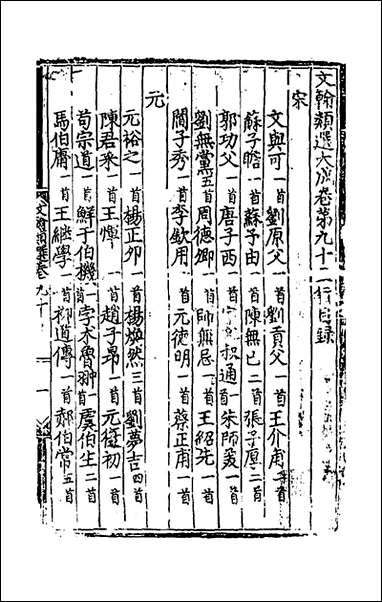 文翰類選大成卷第九十二 行目錄
宋
文與可一首 劉原父一首 劉貢父一首 王介甫二首
蘇子瞻一首 蘇子由一首 陳無己二首 張子厚二首
郭功父一首 唐子西一首 叔通一首 朱師爰一首
劉無黨五首 周德卿一首 師無忌一首 王紹先一首
閻子秀一首 李欽用一首 元德明一首 蔡正甫一首
元
元裕之一首 楊正卿一首 楊煥然三首 劉夢吉四首
陳君采一首 王惲一首 趙子昂一首 元復初一首
荀宗道一首 鮮于伯機一首 孛术魯翀一首 虞伯生二首
馬伯庸一首 王繼學一首 柳道傳一首 鄭伯常五首
文翰類選卷九十 一